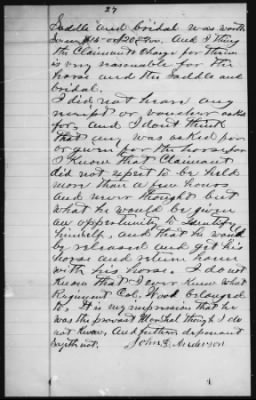 27
Saddle and bridal was worth
And I think
the Claimants charge for them
is very reasonable for the
horse and the Saddle and
bridal.
I did not hear any
receipt or voucher asked
for, and I don't think
that any was asked for
or given for the horse, for
I know that Claimant
did not expect to be held
more than a few hours
and never thought but
what he would be given
an opportunity to
himself, and that he would
be released and get his
horse and return home
with his horse. I do not
know that I ever knew what
Regiment Col. Wood belonged
to. It is my impression that he
was the provost Marshal though I do
not know. And further deponent
saith not. John S. Anderson